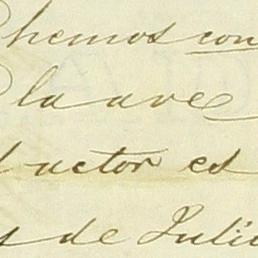 hemos con
la ave
actor es
de Julio